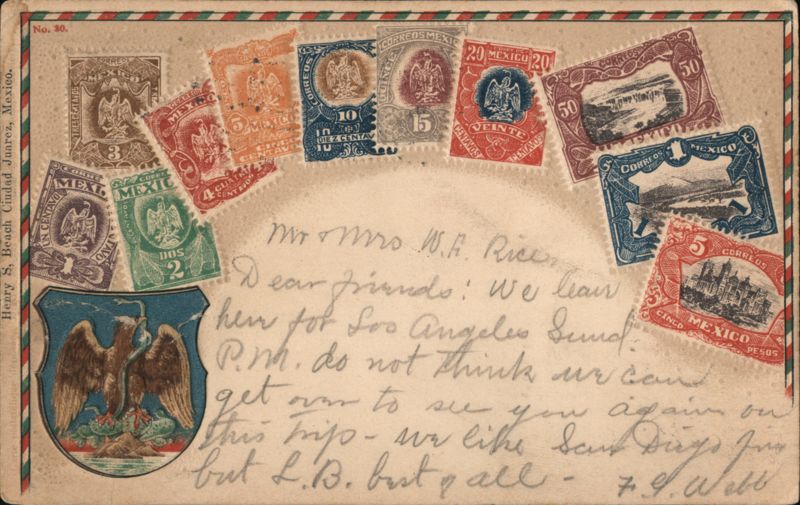 No. 30.
Henry S. Beach Ciudad Juarez, Mexico.
MEXICO
3
MEXICO
4
5
MEXICO
CORREOS
10
10
DIEZ CENTAVOS
CORREOS MEXICO
15
20
MEXICO
20
VEINTE
CENTAVOS
CORREOS
50
50
CORREOS
1
MEXICO
1
1
5
CORREOS
MEXICO
CINCO
PESOS
MEXICO
UN CENTAVO
1
MEXICO
DOS
2
Mr & Mrs W. F. Rice
Dear friends: We leave
here for Los Angeles Sund.
P.M. do not think we can
get over to see you again on
this trip - we like San Diego fine
but L.B. best of all - F. S. Webb